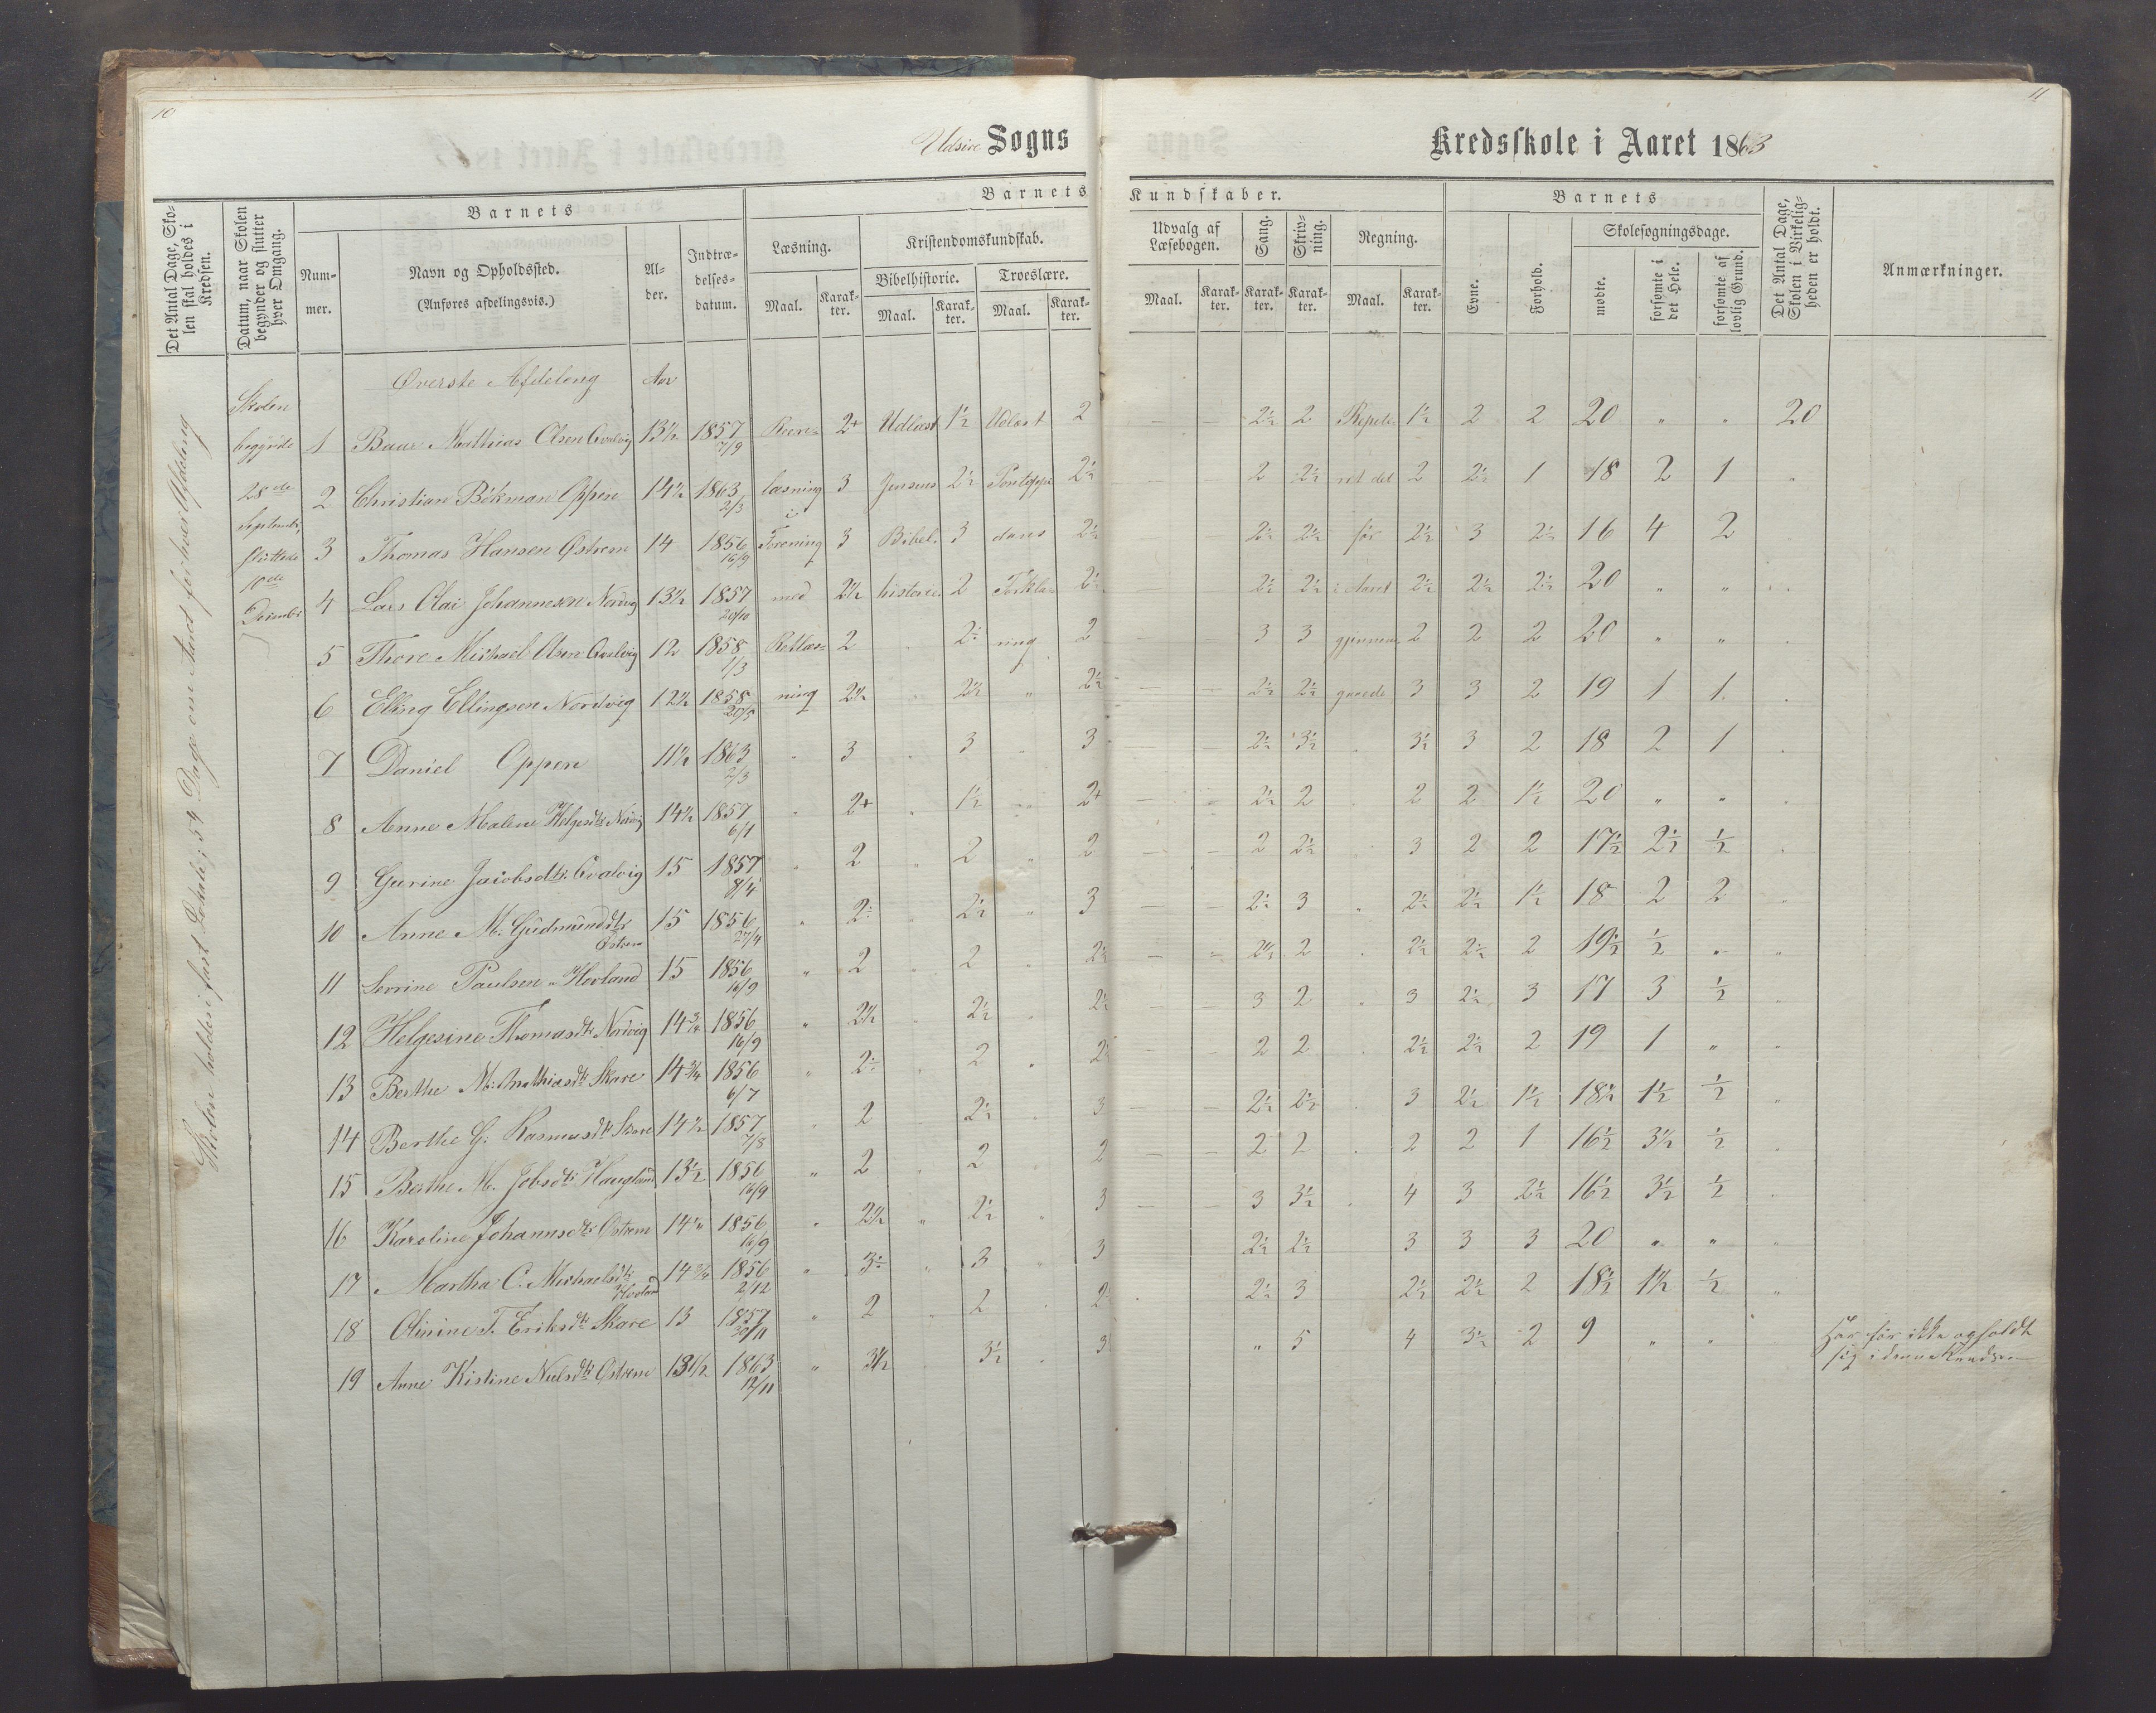 10
11
Udsire Sogns Kredsskole i Aaret 1863
Det Antal Dage, Skolen skal holdes i Kredsen.
Datum, naar Skolen begynder og slutter hver Omgang.
Barnets
Nummer.
Navn og Opholdssted.
(Anføres afdelingsvis.)
Alder.
Indtrædelsesdatum.
Barnets Kundskaber.
Læsning.
Maal. Karakter.
Kristendomskundskab.
Bibelhistorie.
Maal. Karakter.
Troeslære.
Maal. Karakter.
Udvalg af Læsebogen.
Maal. Karakter.
Sang.
Karakter.
Skrivning.
Karakter.
Regning.
Maal. Karakter.
Barnets
Evne.
Forhold.
Skolesøgningsdage.
mødte.
forsømte i det Hele.
forsømte af lovlig Grund.
Det Antal Dage, Skolen i Virkeligheden er holdt.
Anmærkninger.
Skolen holdes i fast Lokale; 54 Dage om Aaret for hver Afdeling
Skolen
begyndte
28de
Septembr,
sluttede
10de
Øverste Afdeling Aar
1 Baar Mathias Olsen 13½ 1857 7/9 Reen- 2+ Udlæst 1½ Udlæst 2 — — 2½ 2 Repete- 1½ 2 2 20 " " 20
2 Christian Bökman Oppen 14½ 1863 2/3 læsning 3 Jensens 2½ Pontoppi- 2½ — — 2 2½ ret det 2 2½ 1 18 2 1 "
3 Thomas Hansen Østrem 14 1856 16/9 i Forening 3 Bibel- 3 dans 2½ — — 2½ 2½ før 2½ 3 2½ 16 4 2
4 Lars Olai Johannesen Nordvig 13½ 1857 20/10 med 2½ historie 2 Forkla- 2½ — — 2½ 2½ i Aaret 2½ 2½ 2½ 20 " "
5 Thore Michael Olsen 12 1858 1/3 Retlæs- 2 2½ ring 2 — — 3 3 gjennem- 2 2 2 20 " "
6 Elling Ellingsen Nordvig 12½ 1858 20/5 ning 2½ 2½ " 2½ — — 2½ 2½ gaaede 3 3 2 19 1 1
7 Daniel Oppen 11½ 1863 2/3 " 3 3 3 — — 2½ 3½ 3½ 3 2 18 2 1
8 Anne Malene Helgesdtr Nordvig 14½ 1857 2+ 1½ 2+ — — 2½ 2 2 2 1½ 20 " "
9 Gurine Jacobsdtr. 15 1857 8/4 " 2 2 " 2 — — 2 2½ 3 2 2 17½ 2½ ½
10 Anne M. Gudmundsdtr Østrem 15 1856 27/4 " 2½ 2½ " 3 — — 2½ 3 2½ 2½ 1½ 18 2 2
11 Serrine Paulsen Hovland 15 1856 16/9 " 2 2 2½ — — 2½ 2 2½ 2½ 2 19½ ½ "
12 Helgesine Thomasdtr Nordvig 14¾ 1856 16/9 " 2½ 2½ 2½ — — 3 2 3 2½ 3 17 3 ½
13 Berthe M. Mathiasdtr Skare 14¾ 1856 6/7 " 2½ 2 2½ — — 2 2 2½ 2½ 2 19 1 "
14 Berthe G. Rasmusdtr Skare 14½ 1857 7/8 2 2½ 3 — — 2½ 2½ 3 2½ 1½ 18½ 1½ ½
15 Berthe M. Jobsdtr Haugland 13½ 1856 16/9 " 2 2 2 — — 2 2 2 2 1 16½ 3½ ½
16 Karoline Johannesdtr Østrem 14½ 1856 16/9 " 2½ " 2½ 3 — — 3 3½ 4 3 2½ 16½ 3½ ½
17 Martha C. Michaelsdtr Hovland 14¾ 1856 2/12 " 3½ " 3 3 2½ 2½ 3 3 3 20 " "
18 Olinine T. Eriksdtr Skare 13 1857 30/11 " 2 2 2½ 2½ 3 2½ 2½ 2 18½ 1½ ½ "
19 Anne Kistine Nielsdtr Østrem 13½ 1863 12/11 " 3½ 3½ 3½ " 5 4 3½ 2 9 " " Har før ikke opholdt
sig i denne